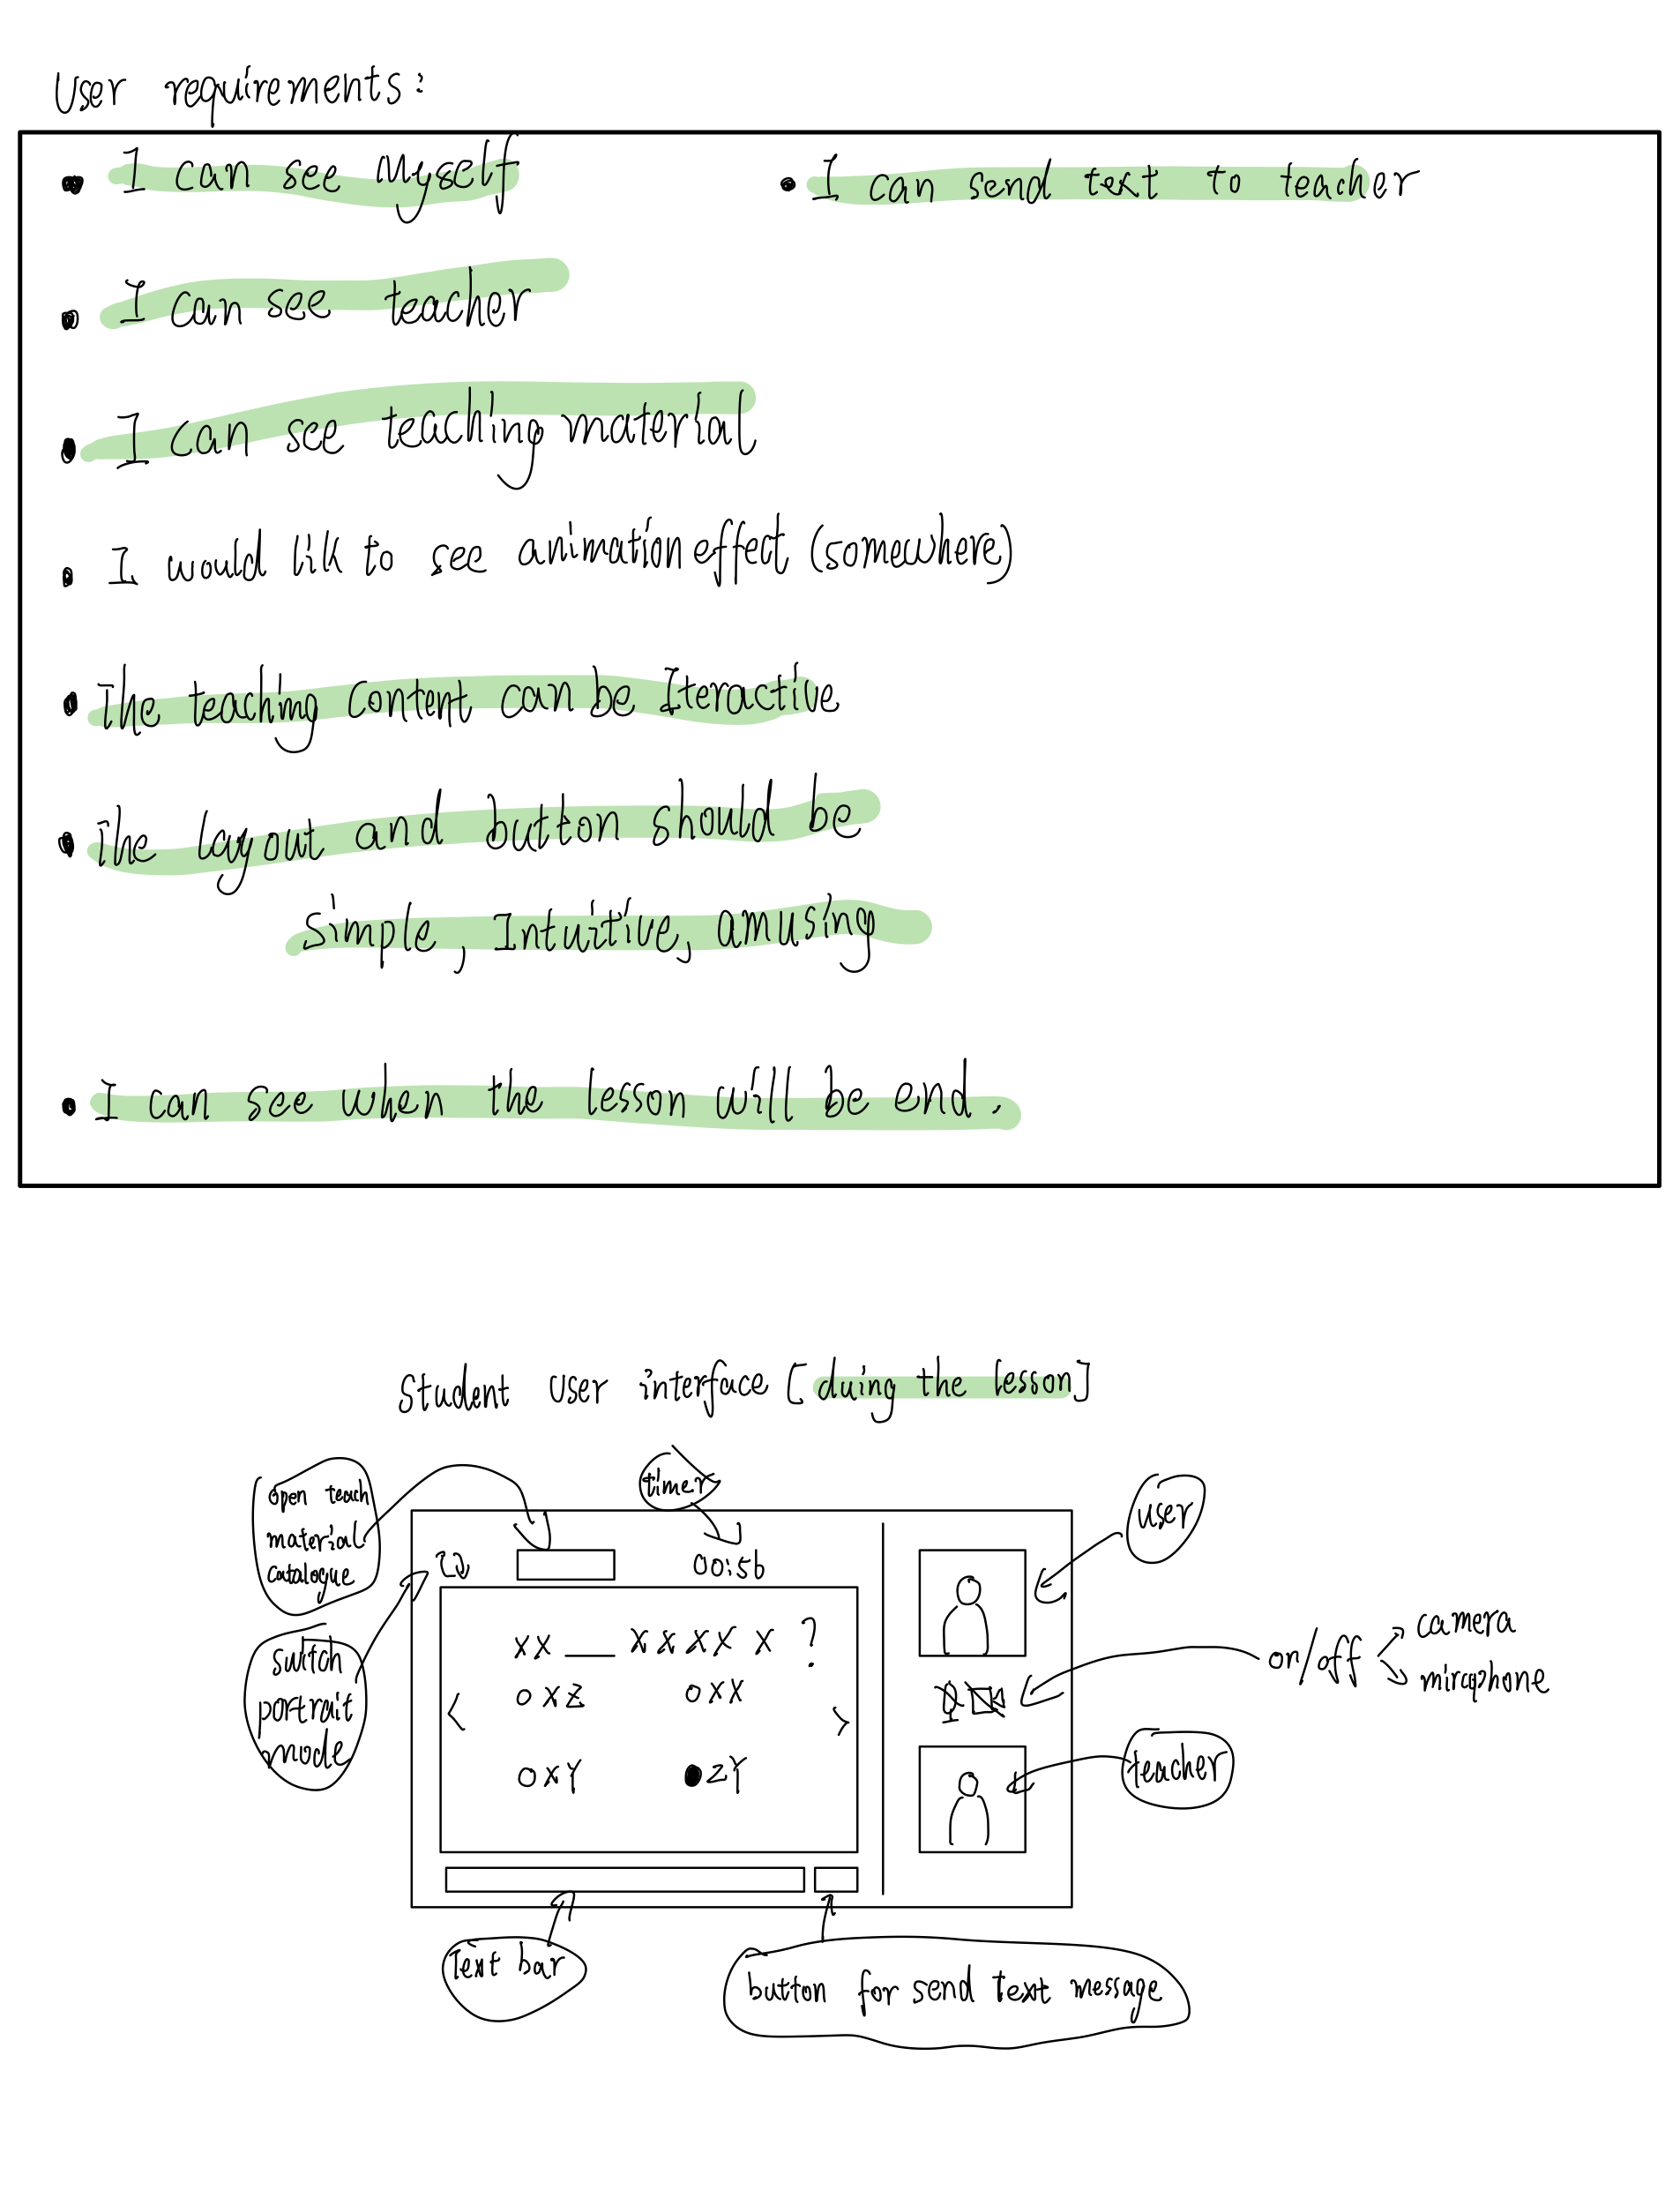 User requirements:
I can see Myself
I can send text to teacher
I can see teacher
I can see teaching material
I would lik to see animation effect (somewhere)
The teaching content can be Iteractive
The layout and button should be
simple, Intuitive, amusing
I can see when the lesson will be end.
Student User interface [duing the lesson]
open teach
material
catalogue
timer
user
00:56
switch
portrait
mode
xx __ x x x x x ?
o xz
o xx
<
>
o xY
zY
on/off
camera
mircophone
teacher
Text bar
button for send text message